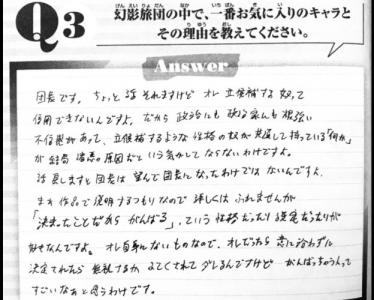 Q3
幻影旅団の中で、一番お気に入りのキャラと
その理由を教えてください。
Answer
団長です。ちょっと話それますけど オレ 立候補する奴って
信用できないんですよ。だから政治にも 政治家にも 根強い
不信感があって、立候補するような性格の奴が共通して持っている「何か」
が結局 諸悪の原因だという気がしてならないわけですよ。
話 戻しますと団長は 望んで団長になったわけではないんですよ。
まあ 作品で説明するつもりなので 詳しくは ふれませんが
「決まったことだから がんばる」っていう性格だったり設定だったりが
好きなんですよ。オレ自身にないものなので、オレだったら 意に沿わずに
決定されたら 無視するか よてくされて ダレるんですけど がんばっちゃうんって
すごいなあと思うわけです。